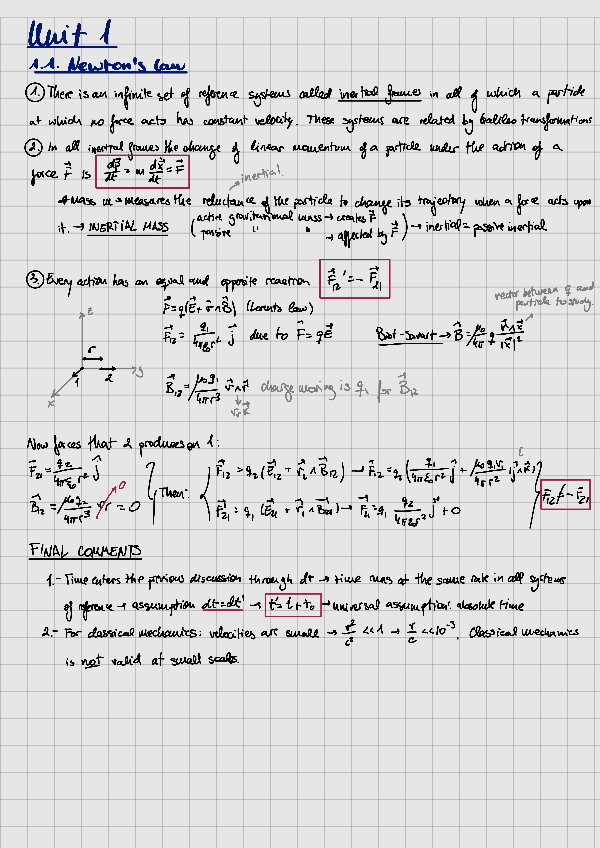 Unit 1
1.1. Newton's Law
1. There is an infinite set of reference systems called inertial frames in all of which a particle
at which no force acts has constant velocity. These systems are related by Galileo transformations
2. In all inertial frames the change of linear momentum of a particle under the action of a
force F⃗ is dp⃗/dt = m dx⃗/dt = F⃗
inertial
Mass m = measures the reluctance of the particle to change its trajectory when a force acts upon
it. → INERTIAL MASS (active gravitational mass → creates F⃗
passive " " → affected by F⃗) → inertial = passive inertial
3. Every action has an equal and opposite reaction F⃗12' = - F⃗21
vector between q and
particle to study.
F⃗ = q(E⃗ + v⃗ ∧ B⃗) (Lorentz law)
F⃗12 = q1/4πε0r² ĵ due to F⃗ = qE⃗
Biot-Savart → B⃗ = μ0/4π q v⃗∧x⃗/|x⃗|²
z
r
1 2 y
x
B⃗12 = μ0q1/4πr³ v⃗∧r⃗ charge moving is q1 for B⃗12
Now forces that 2 produces on 1:
F⃗21 = q2/4πε0r² ĵ
B⃗12 = μ0q2/4πr³ vr = 0
0
Then:
F⃗12 = q2(E⃗12 + v⃗2 ∧ B⃗12) → F⃗12 = q2(q1/4πε0r² ĵ + μ0q1v1/4πr² ĵ∧k̂)
F⃗21 = q1(E⃗21 + v⃗1 ∧ B⃗21) → F⃗21 = q1 q2/4πε0r² ĵ + 0
F⃗12 ≠ - F⃗21
FINAL COMMENTS
1.- Time enters the previous discussion through dt → time runs at the same rate in all systems
of reference → assumption dt = dt' → t' = t + t0 → universal assumption: absolute time
2.- For classical mechanics: velocities are small → v²/c² << 1 → v/c << 10⁻³. Classical mechanics
is not valid at small scales.